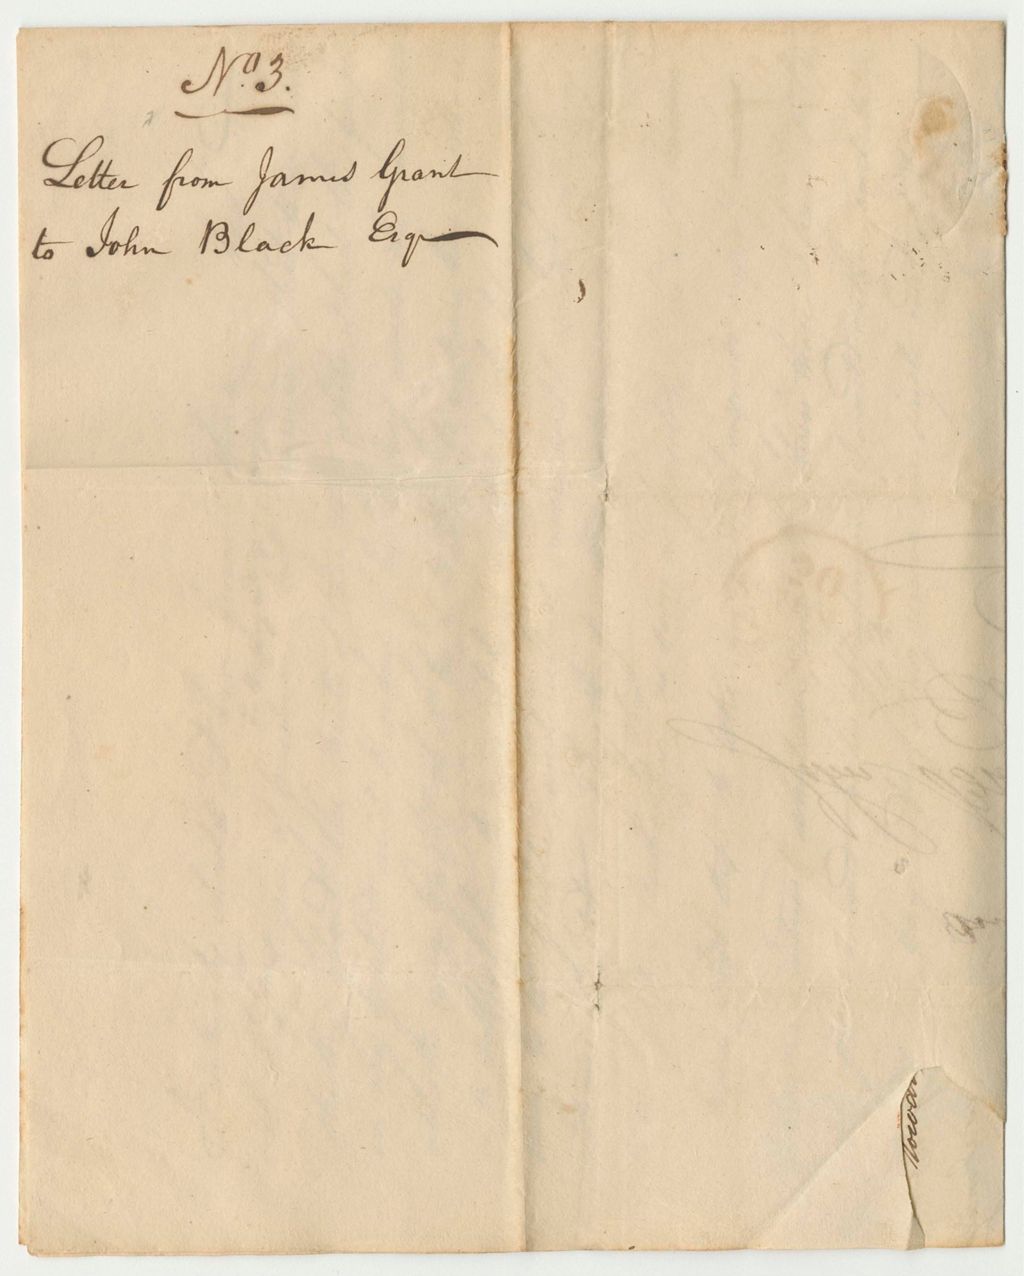 No. 3.
Letter from James Grant
to John Black Esqr